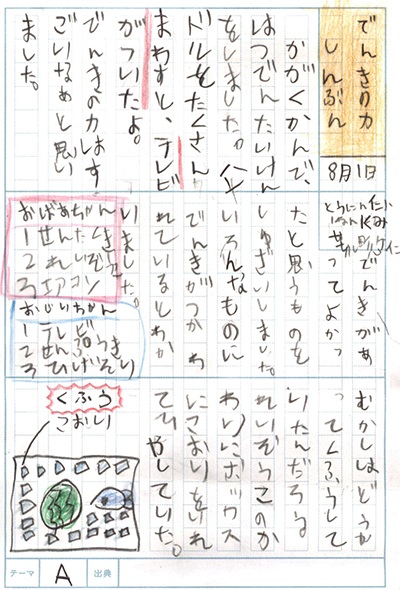 でんきの力
しんぶん
8月1日
かがくかんで、
はつでんたいけん
をしました。ハン
ドルをたくさん
まわすと、テレビ
がついたよ。
でんきの力はす
ごいなぁと思い
ました。
でんきがあ
ってよかっ
たと思うものを
しゅざいしました。
いろんなものに
でんきがつかわ
れているとわか
りました。
おばあちゃん
1せんたくき
2れいぞうこ
3エアコン
おじいちゃん
1テレビ
2せんぷうき
3ひげそり
むかしはどうや
ってくふうして
いたんだろう
れいぞうこのか
わりにボックス
にこおりをいれ
てひやしていた。
くふう
こおり
テーマ A 出典